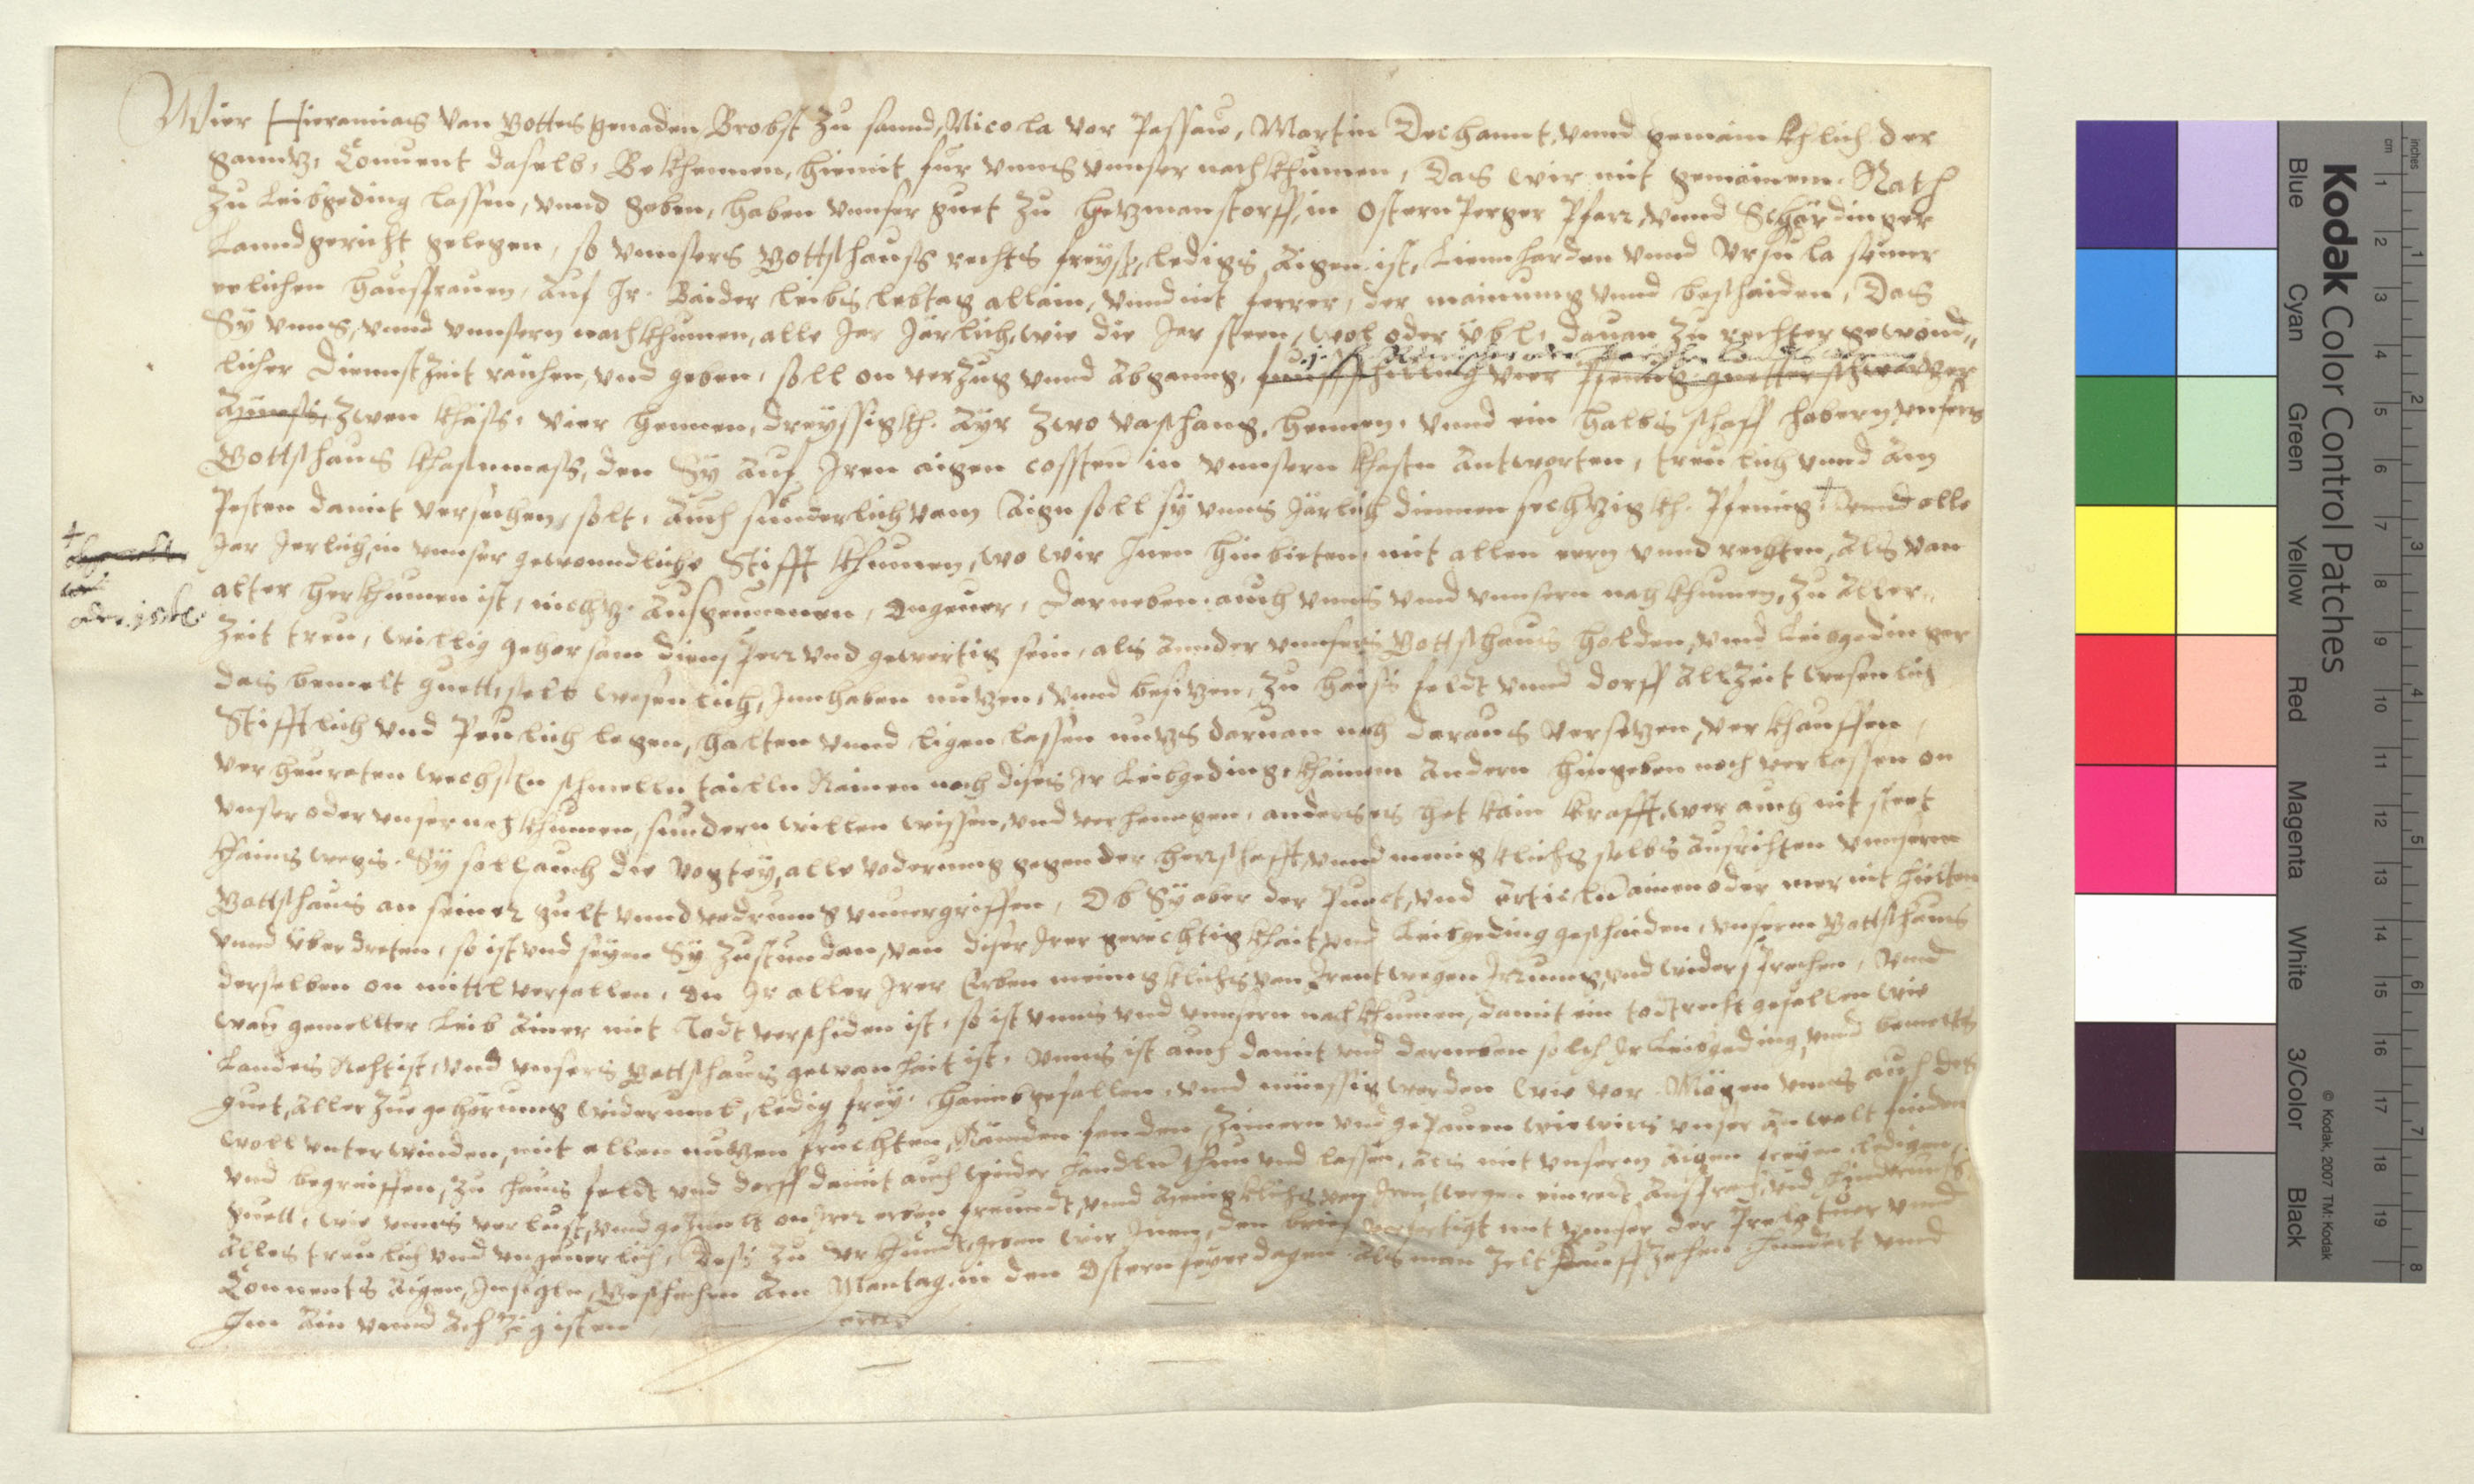 Wier Hieremias von Gottes genaden Brobst zu sannd, Nicola vor Passaw, Martin Dechannt, vnnd gemainkhlich der
ganntz, Conuent daselb, Bekhennen, hiemit für vnns vnnser nachkhumen, Das wir mit gemainem Rath
zu Leibgeding lassen, vnnd geben, haben vnnser guet zu Hetzmanstorff, in Osternperger Pfarr, vnnd Schärdinger
Lanndgericht gelegen, so vnnsers Gottshauss rechts freys, ledigs Aigen ist, Liennharden vnnd Vrsula seiner
eelichen hausfrauen, Auf Jr Baider leibs lebtag allain, vnnd nit ferrer, der mainung vnnd beschaiden, Das
Sy vnns, vnnd vnnsern nachkhumen, alle Jar Järlich, wie die Jar steen, wol oder übl, dauon zu rechter gewond„
licher Diennstzeit raichen, vnd geben, soll on verzug vnnd Abganng, fünffschilling vier Pfening guetter schwarzer
Münss, zwen khäss, vier hennen, dreyssigkh. Ayr zwo vaschang, hennen, vnnd ein halbs schaff habern, vnsers
Gottshaus khastnmass, den Sy Auf Jren aigen cossten in vnnsern khastn Antworten, treulich vnnd Am
Pesten damit versechen, solt, Auch sunderlich vom Aign soll sy vnns Järlich diennen sechtzigkh. Pfening + vnnd alle
+
Jar Jerlich, in vnnser gewonndliche Stifft khumen, wo wir Jnen hinbieten, mit allen eern vnnd rechten, Als von
alter herkhumen ist, nichtz Ausgenumen, Ongeuer, Darneben auch vnns vnnd vnnsern nachkhumen, zu Aller„
Zeit treu, willig gehorsam dienstperr vnd gewertig sein, als annder vnnsers Gottshaus holden, vnnd Leibgedinger
das bemelt guett, selb wesenlich, Jnnhaben nutzen, vnnd besitzen, zu haus feldt vnnd dorff Allzeit wesenlich
Stifftlich vnd Peulich legen, halten vnnd ligen lassen nutzs daruon noch daraus versetzen, verkhauffen,
verheuraten wechsln schmelln tailln Rainen noch dises Jr Leibgeding, khainem Andern hingeben noch verlassen on
vnser oder vnser nachkhumen, sundern willen wissen, vnd verhenngen, anders es het kain krafft, wer auch nit steet
khains wegs. Sy soll auch die vogtey, alle vodrung gegen der herrschafft, vnnd menigklichs selbs Ausrichten vnnserm
Gottshaus an seiner gult vnnd vodrung vnuergriffen, Ob Sy aber der Punct, vnd Articln ainen oder mer nit hielten
vnnd überdreten, so ist vnd seyen Sy zustundan, von diser Jrer gerechtigkhait vnd Leibgeding geschaiden, vnserm Gottshaus
derselben on mittl verfallen, On Jr aller Jrer Erben menigklichs von Jrentwegen Jrrung, vnd widersprechen, Vnnd
wan gemellter Leib Ainer mit Todt verschiden ist, so ist vnns vnd vnnsern nachkhumen, damit ein todtrecht gefallen wie
Landes Recht ist, vnd vnsers Gottshaus gewonhait ist. Vnns ist auch damit vnd darneben solch Jr Leibgeding, vnnd bemelts
guet, Aller zuegehörung widerumb, ledig frey, haimbgefallen, vnnd müessig worden wie vor. Mögen vnns auch des
woll vnterwinden, mit allen nutzen fruchten, Känden fenden, Zimern vnd gepauen wie wirs vnser Anwelt finden
vnd begreiffen, zu haus feldt vnd dorff damit auch wider handln thun vnd lassen, Als mit vnserm Aigen freyen ledigen,
guett, wie vnns verlust, vnd gelust on Jrer erben freundt, vnnd Menigklichs von Jrentwegen einredt, Ansprach, vnd hindernuss
Alles treulich vnd vngeuerlich, Dess zu Vrkhundt, geben wir Jnen, den brief verfertigt mit vnnser der Prelatuer vnnd
Conuents Aigen, Jnsigln, Geschehen Am Montag, in den Osternfeyerdagen Als man zelt fünffzehen hundert vnnd
Jm Ain vnnd Achtzigisten